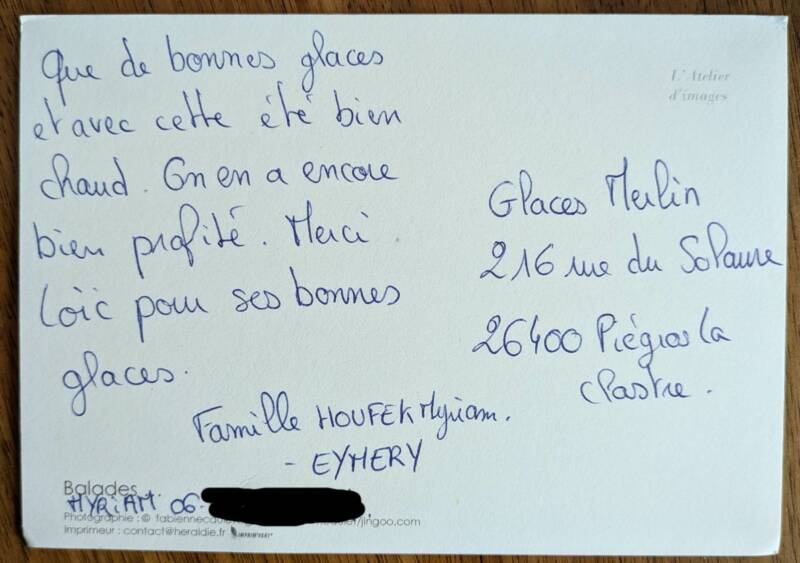 Que de bonnes glaces
et avec cette été bien
chaud. On en a encore
bien profité. Merci
Loïc pour ses bonnes
glaces.
Famille HOUFEK Myriam.
- EYMERY
L'Atelier
d'images
Glaces Merlin
216 rue du Solaure
26400 Piégros la
Clastre.
Balades...
MYRIAM 06-
Photographie : © jingoo.com
Imprimeur : contact@heraldie.fr